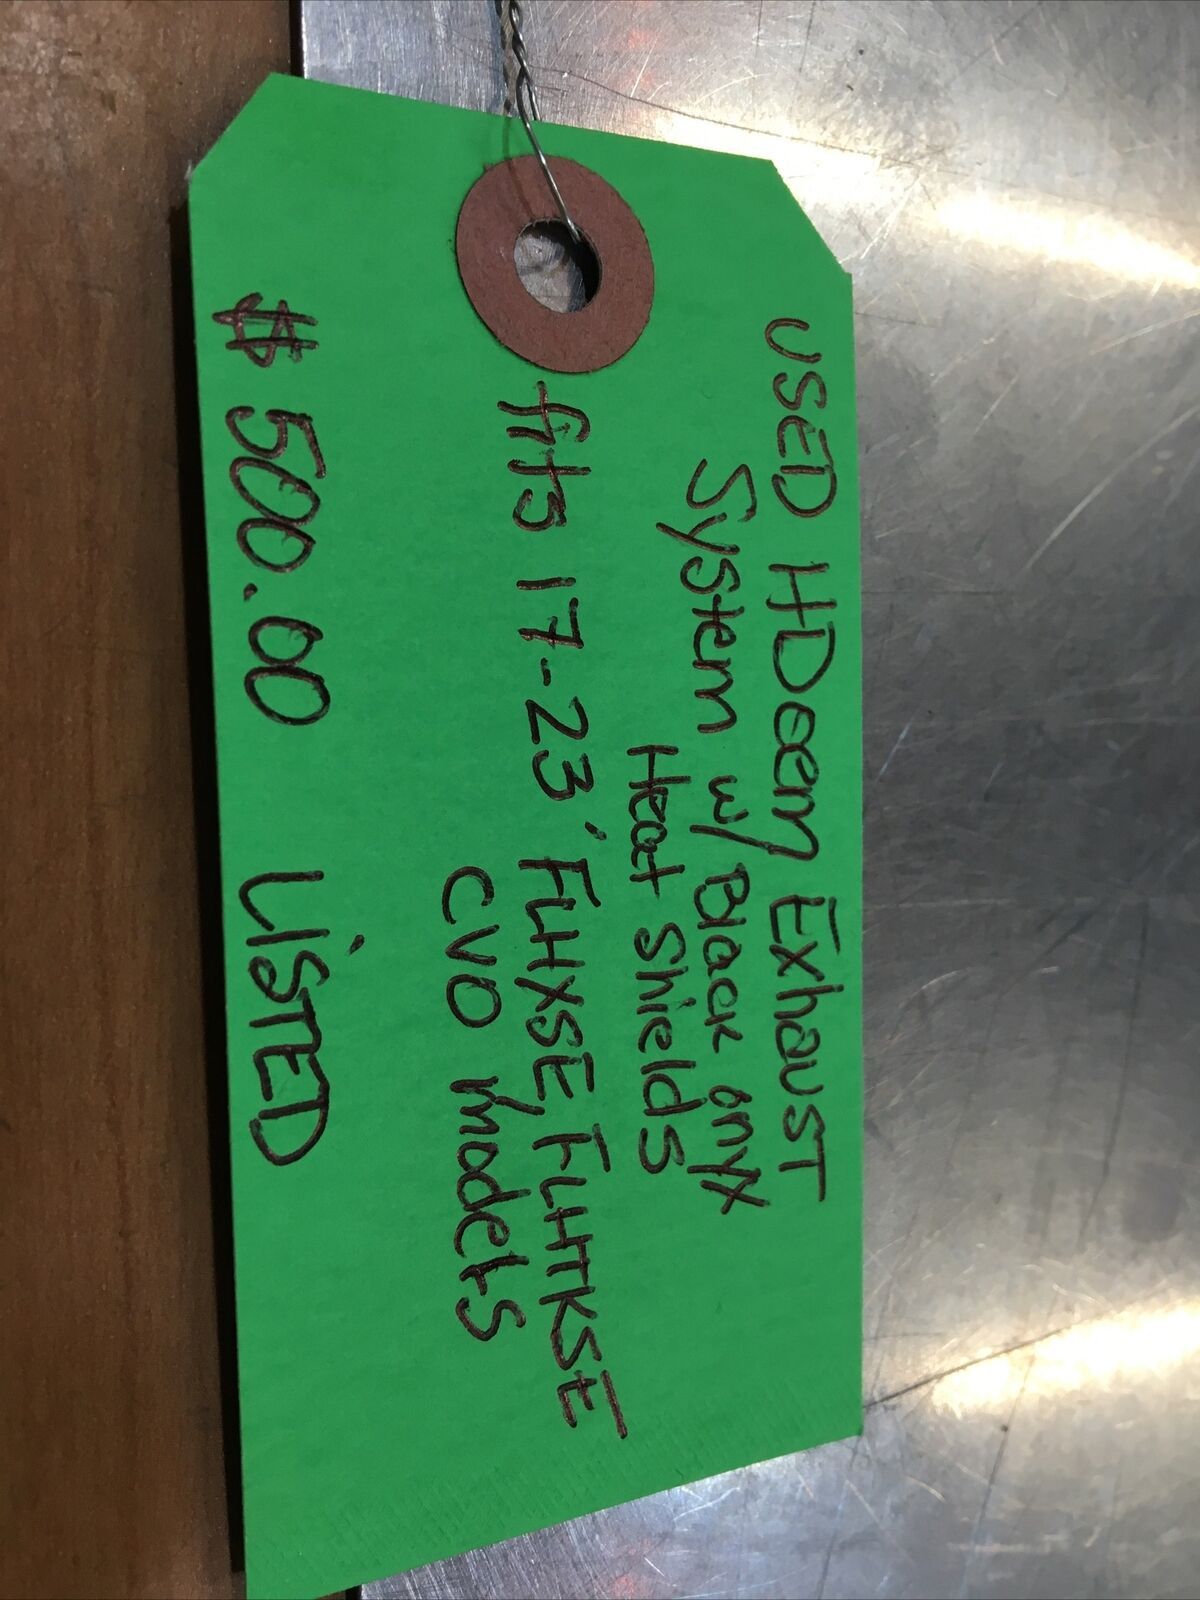 USED HD oem Exhaust
System w/ Black onyx
Heat Shields
fits 17-23' FLHXSE, FLHTKSE
CVO models
$500.00 LISTED